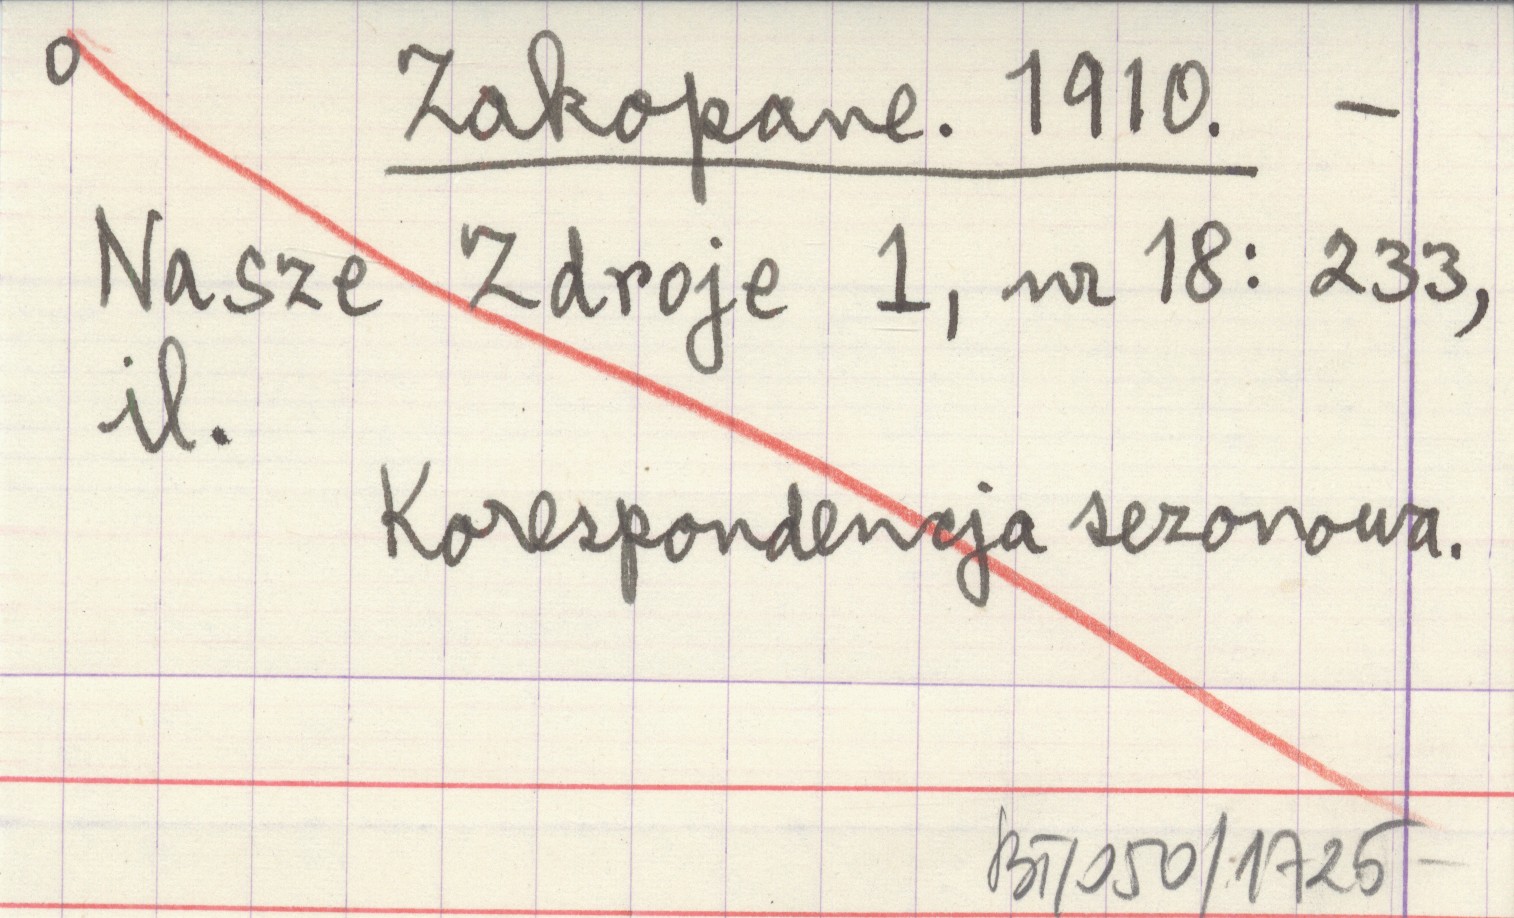 o Zakopane. 1910. –
Nasze Zdroje 1, nr 18: 233,
il.
Korespondencja sezonowa.
BT/050/1725